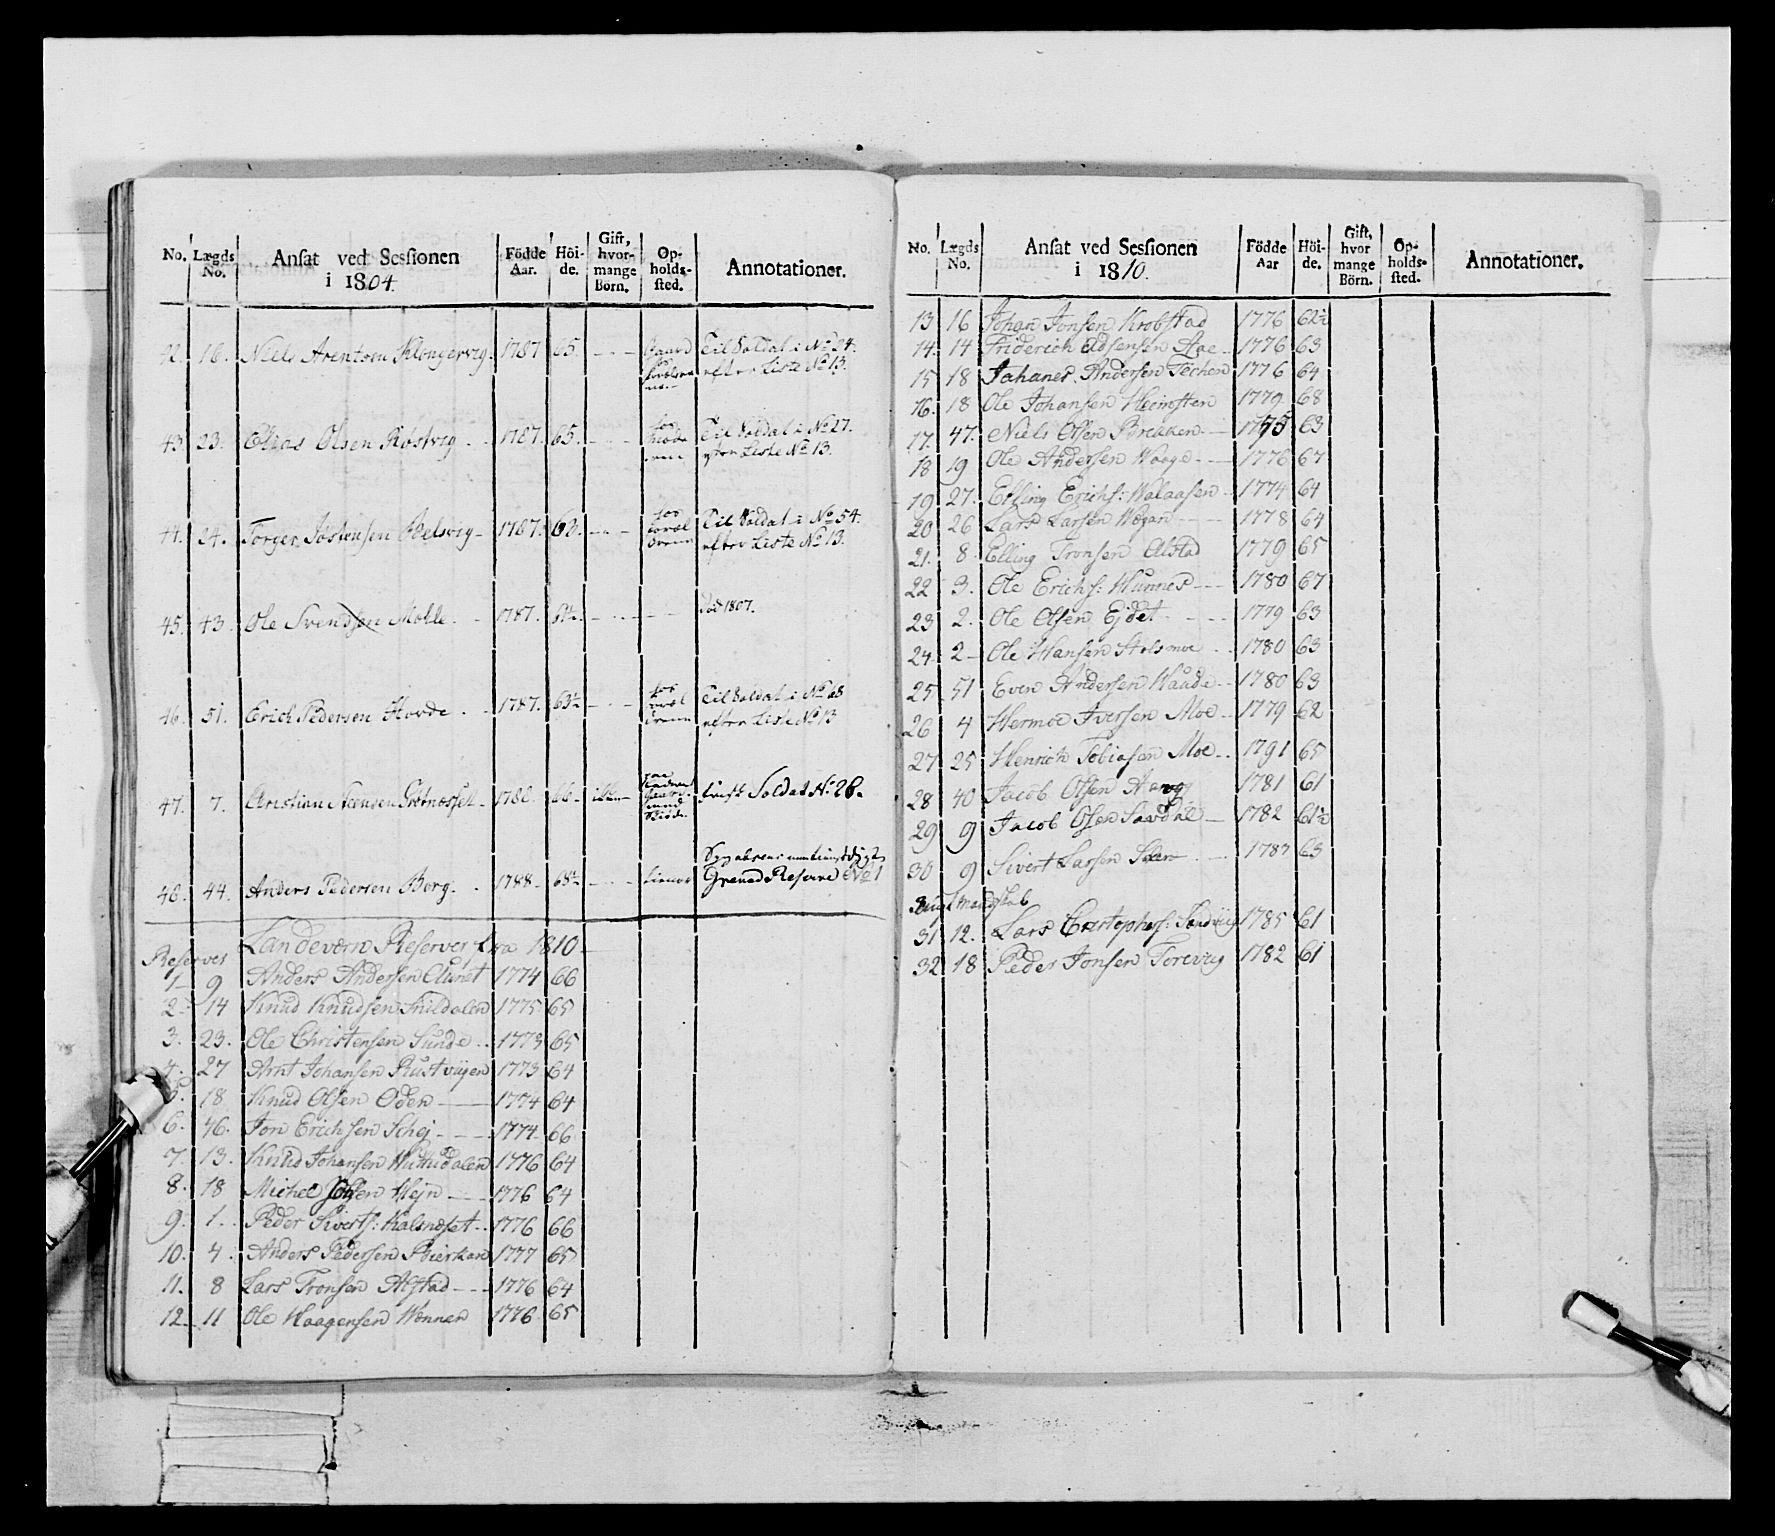 No. Lægds No. Ansat ved Sessionen i 1804. Födde Aar. Höi-de. Gift, hvor-mange Börn. Op-holds-sted. Annotationer.
42. 16. Niels Arentsen Klongervig. 1787 65. Til Soldat i No 24. efter Liste No 13.
43. 23. Elias Olsen Röstvig 1787. 65. Til Soldat i No 27. efter Liste No 13.
44. 24. Torger Jostensen Belsvig 1787. 63. Til Soldat i No 54. efter Liste No 13.
45. 43. Ole Svendsen Molde. 1787. död 1807.
46. 51. Erich Pedersen Hovde. 1787. 63½ Til Soldat i No efter Liste No 13
47. 7. Christian Steensen 66. Soldat No 28.
48. 44. Anders Pedersen Borg. 1788. Grenad Reserve No 1
Reserver Landeværn Reserver fra 1810
1 9 Anders Andersen Aunet 1774 66
2 14 Knud Knudsen Snildalen 1775 65
3. 23. Ole Christensen Sunde 1773 65
4. 27 Arnt Johansen Rustviigen 1773 64
5. 18 Knud Olsen Oden 1774 64
6. 46. Jon Erichsen Schej 1774 66
7. 13. Knud Johansen 1776 64
8. 18 Michel Hejn 1776 64
9. 1. Peder Sivertς: Kalsnæset 1776 66
10. 4 Anders Pedersen 1777 65
11. 8 Lars Tronsen Alstad 1776 64
12 11 Ole Haagensen Wennen 1776 65
No. Lægds No. Ansat ved Sessionen i 1810. Födde Aar Höi-de. Gift, hvor mange Börn. Op-holds-sted. Annotationer.
13 16 Johan Jonsen Krobstad 1776 62½
14. 14 Friderich Adsensen 1776 63
15 18 Johanes Andersen 1776 64
16. 18 Ole Johansen Heimsten 1779 68
17. 47. Niels Olsen Brekken 1775 63
18 19 Ole Andersen Waage 1776 67
19 27. Elling Erichs: Walaasen 1774 64
20 26 Lars Larsen Wogan 1778 64
21. 8 Elling Tronsen Alstad 1779 65
22 3. Ole Erichs: Wunnes 1780 67
23 2. Ole Olsen Ejdet 1779 63
24 2 Ole Hansen Stolsmoe 1780 63
25 51 Even Andersen Haude 1780 63
26 4 Hermoe Iversen Moe 1779 62
27 25 Henrich Tobiasen Moe 1791 65
28 40 Jacob Olsen 1781 61
29 9 Jacob Olsen Sandal 1782 61½
30 9 Sivert Larsen 1787 63
Mandskab
31 12. Lars Christophers: Sandviig 1785 61
32 18 Peder Jonsen Torvig 1782 61